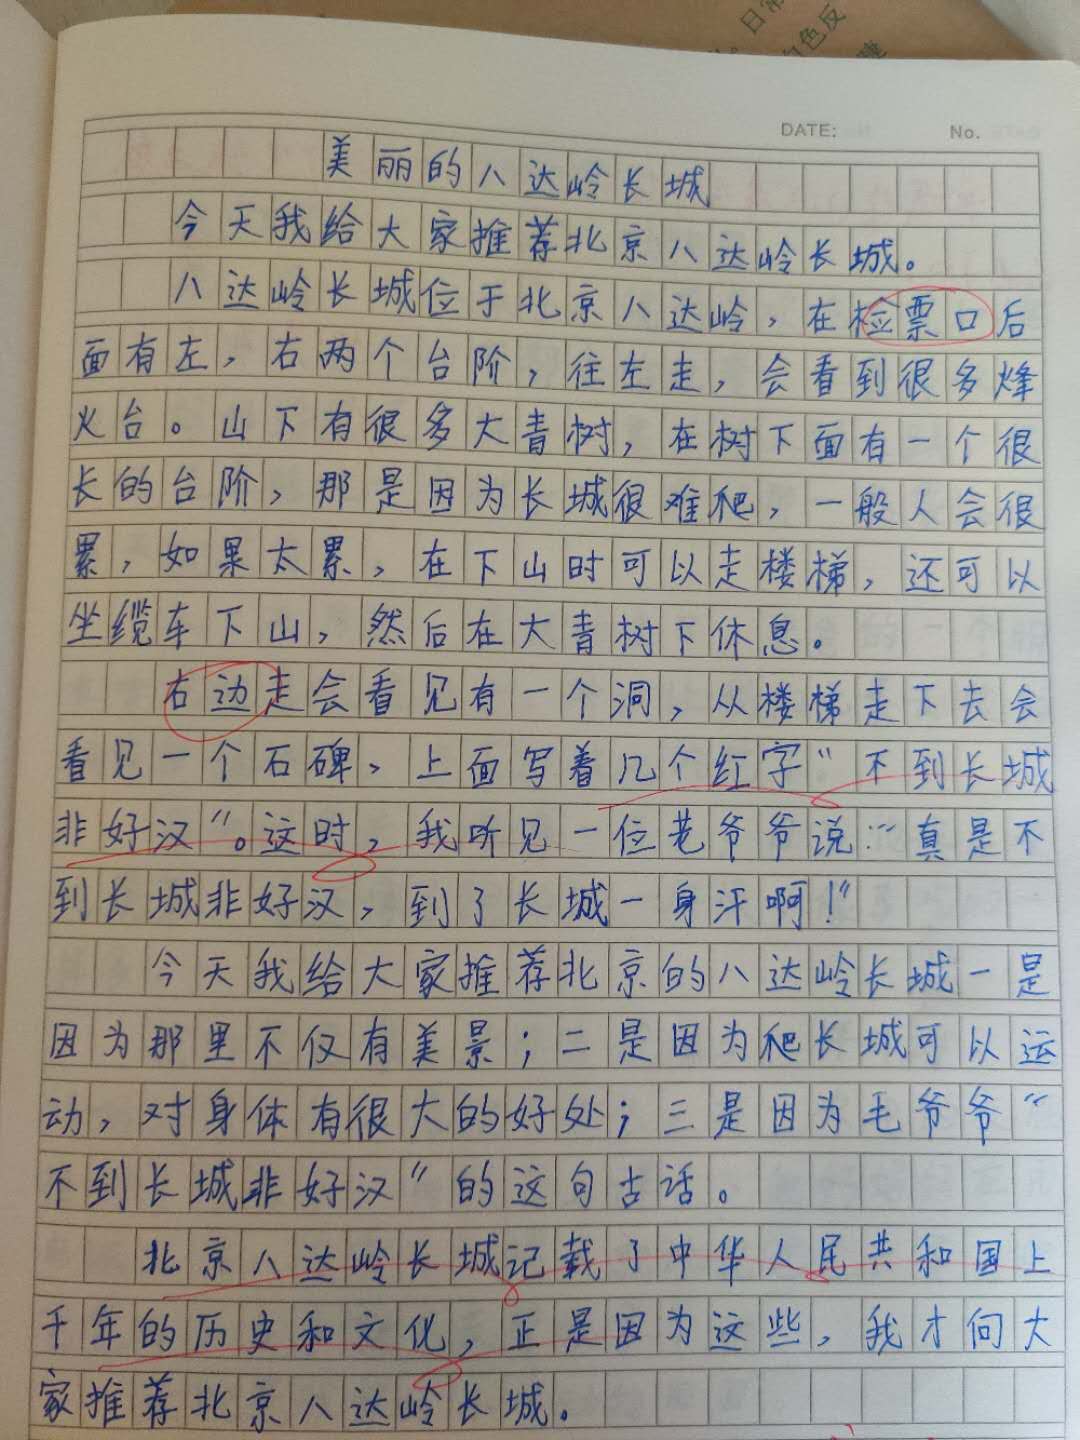 日常
白色反
睡
DATE:
No.
美丽的八达岭长城
今天我给大家推荐北京八达岭长城。
八达岭长城位于北京八达岭，在检票口后
面有左，右两个台阶，往左走，会看到很多烽
火台。山下有很多大青树，在树下面有一个很
长的台阶，那是因为长城很难爬，一般人会很
累，如果太累，在下山时可以走楼梯，还可以
坐缆车下山，然后在大青树下休息。
右边走会看见有一个洞，从楼梯走下去会
看见一个石碑，上面写着几个红字“不到长城
非好汉”。这时，我听见一位老爷爷说：“真是不
到长城非好汉，到了长城一身汗啊！”
今天我给大家推荐北京的八达岭长城一是
因为那里不仅有美景；二是因为爬长城可以运
动，对身体有很大的好处；三是因为毛爷爷“
不到长城非好汉”的这句古话。
北京八达岭长城记载了中华人民共和国上
千年的历史和文化，正是因为这些，我才向大
家推荐北京八达岭长城。